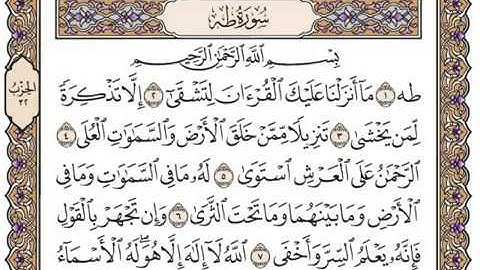 سُورَةُ طه
الحِزْبُ
٣٢
بِسْمِ ٱللَّهِ ٱلرَّحْمَٰنِ ٱلرَّحِيمِ
طه ١ مَآ أَنزَلْنَا عَلَيْكَ ٱلْقُرْءَانَ لِتَشْقَىٰٓ ٢ إِلَّا تَذْكِرَةً
لِّمَن يَخْشَىٰ ٣ تَنزِيلًا مِّمَّنْ خَلَقَ ٱلْأَرْضَ وَٱلسَّمَٰوَٰتِ ٱلْعُلَى ٤
ٱلرَّحْمَٰنُ عَلَى ٱلْعَرْشِ ٱسْتَوَىٰ ٥ لَهُۥ مَا فِى ٱلسَّمَٰوَٰتِ وَمَا فِى
ٱلْأَرْضِ وَمَا بَيْنَهُمَا وَمَا تَحْتَ ٱلثَّرَىٰ ٦ وَإِن تَجْهَرْ بِٱلْقَوْلِ
فَإِنَّهُۥ يَعْلَمُ ٱلسِّرَّ وَأَخْفَى ٧ ٱللَّهُ لَآ إِلَٰهَ إِلَّا هُوَۖ لَهُ ٱلْأَسْمَآءُ